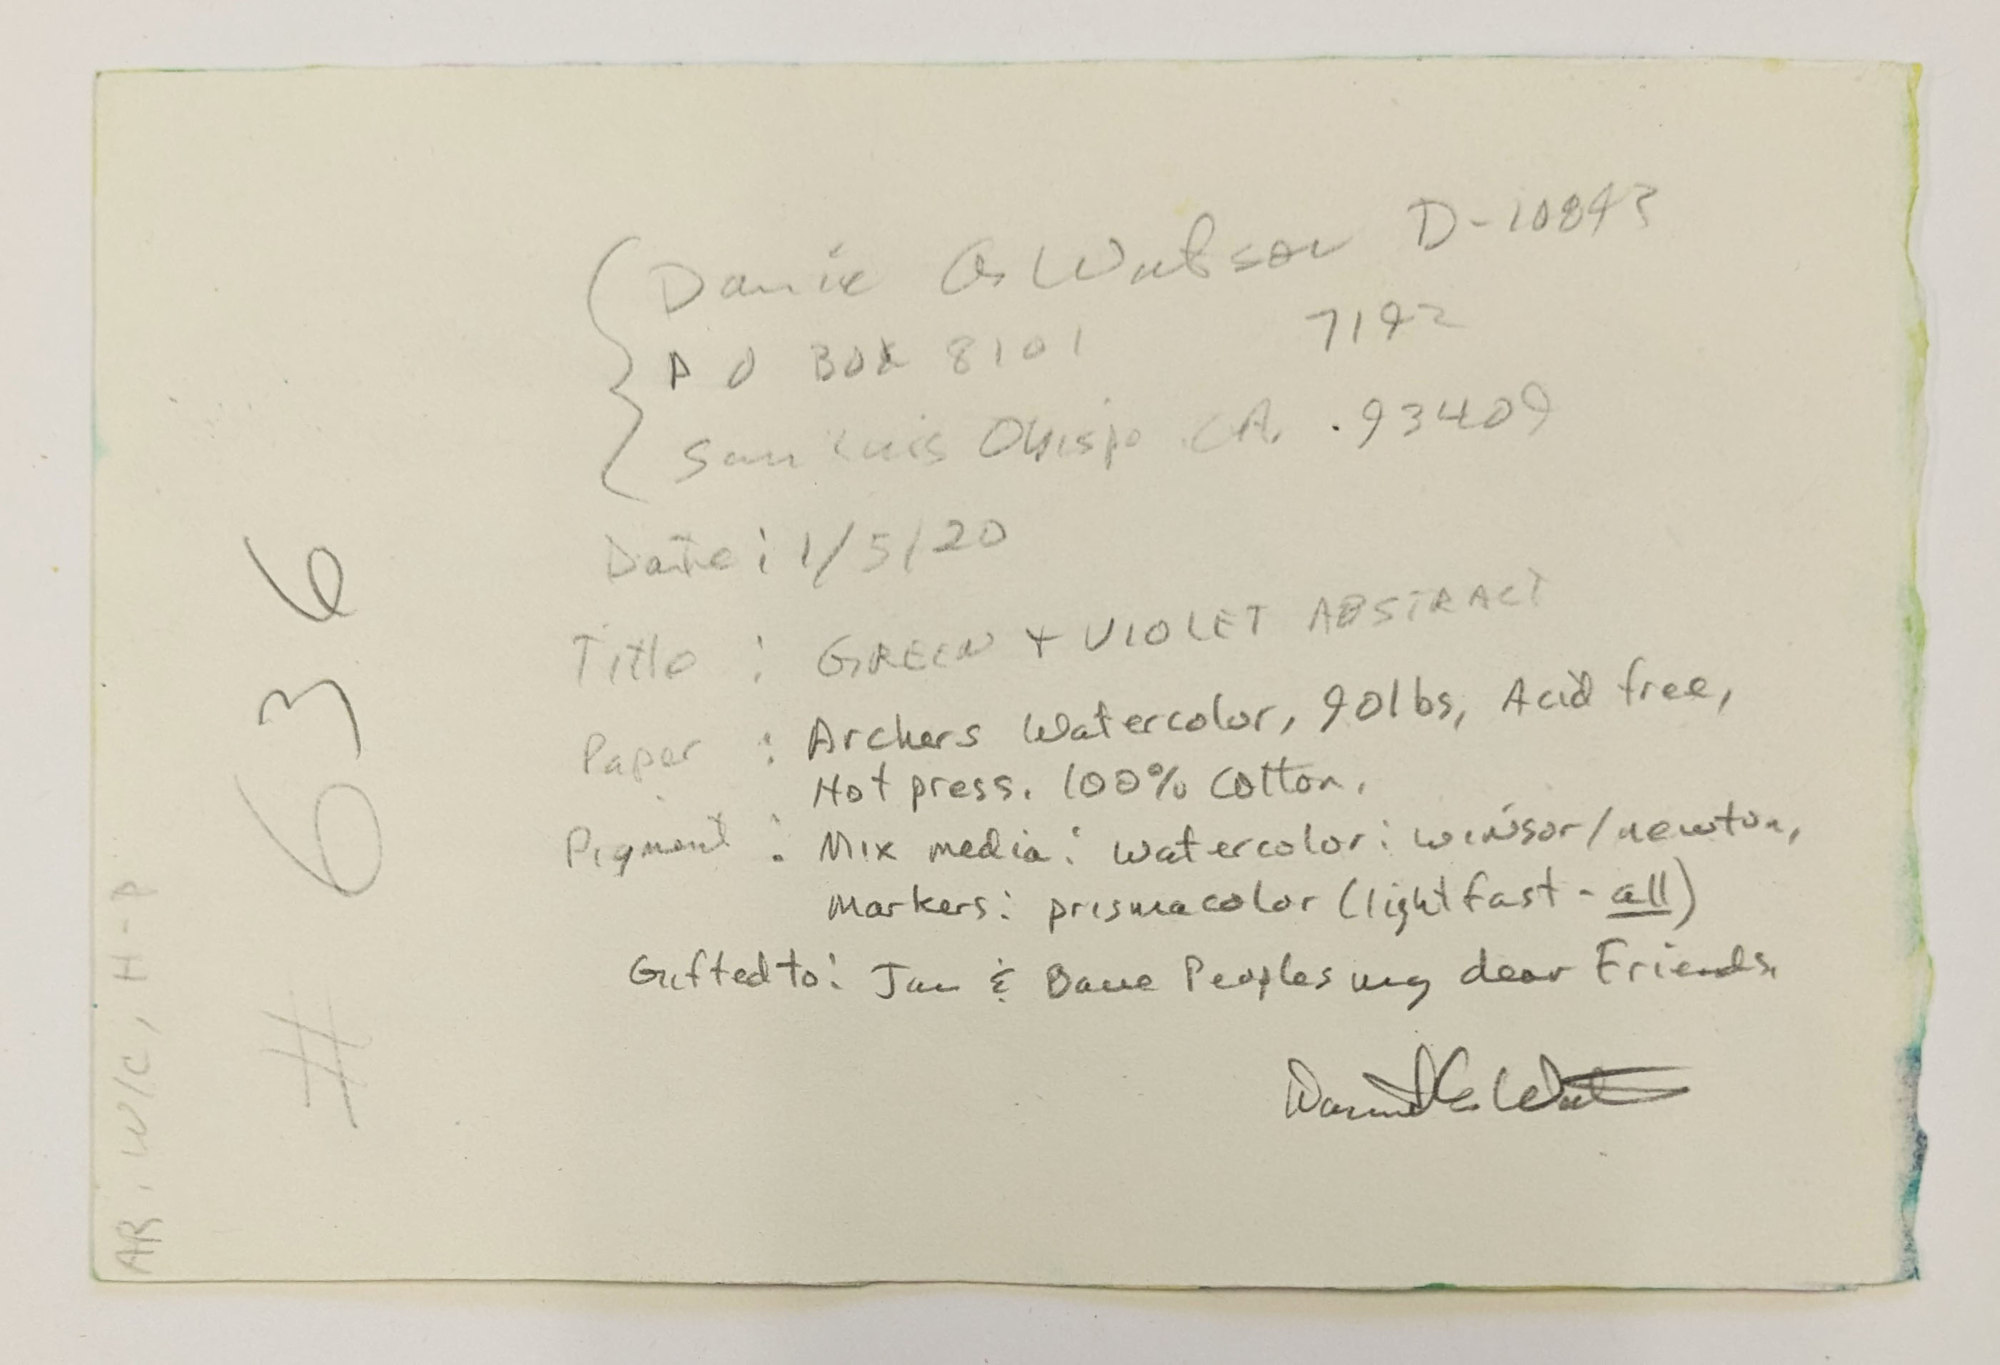 Danie G Watson D-10843
P O BOX 8101 7192
San Luis Obispo CA. 93409
Date: 1/5/20
Title : GREEN + VIOLET ABSTRACT
Paper : Archers Watercolor, 90lbs, Acid free,
Hot press. 100% cotton.
Pigment : Mix media: watercolor: winsor/newton,
Markers: prismacolor (lightfast - all)
Gifted to: Jan & Dave Peoples my dear Friends.
# 636
AR. W/C, H-P